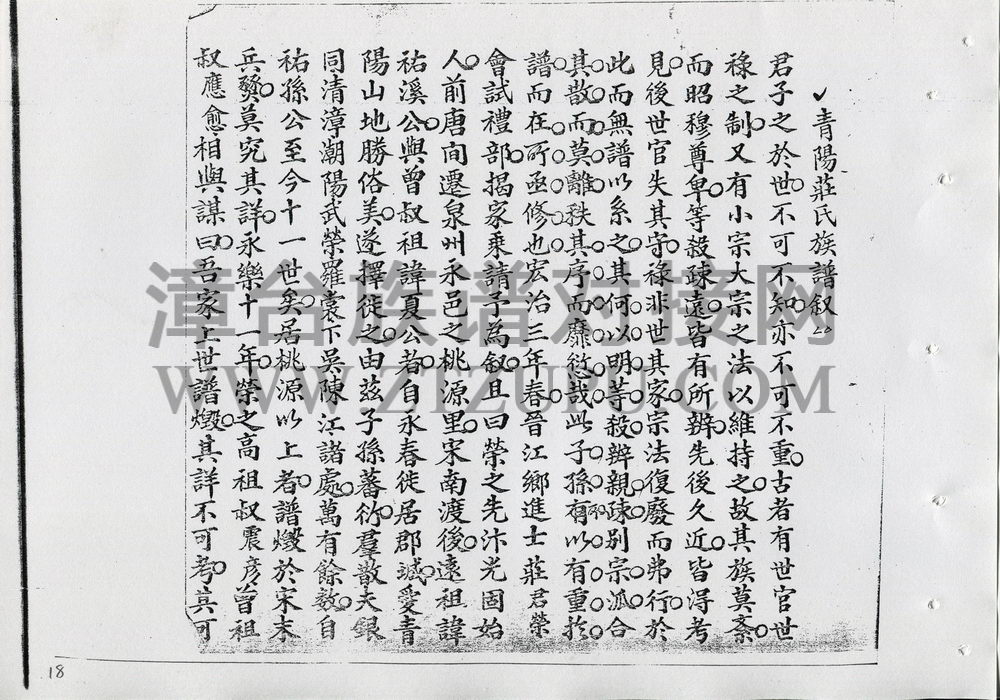 青陽莊氏族譜叙
君子之於世不可不知亦不可不重古者有世官世
祿之制又有小宗大宗之法以維持之故其族莫紊
而昭穆尊卑等殺疎遠皆有所辨先後久近皆得考
見後世官失其守祿非世其家宗法復廢而弗行於
此而無譜以系之其何以明等殺辨親疎别宗派合
其散而莫離秩其序而靡愆哉此子孫有以有重於
譜而在所亟修也宏治三年春晉江鄉進士莊君榮
會試禮部揭家乘請予為叙且曰榮之先汴光固始
人前唐间遷泉州永邑之桃源里宋南渡後遠祖諱
祐溪公與曾叔祖諱夏公者自永春徙居郡城愛青
陽山地勝俗美遂擇徙之由茲子孫蕃衍羣散夫銀
同清漳潮陽武榮羅裳下吳陳江諸處萬有餘数自
祐孫公至今十一世矣居桃源以上者譜燬於宋末
兵燹莫究其詳永樂十一年榮之高祖叔震彦曾祖
叔應愈相與謀曰吾家上世譜燬其詳不可考其可
漳台族谱对接网
WWW.ZTZUPU.COM
18